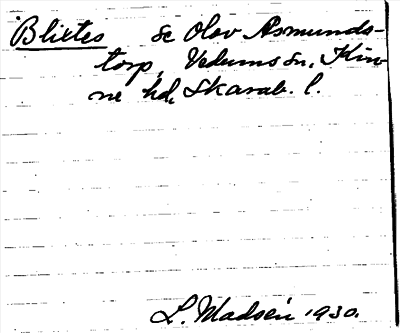 Blixtes se Olov Asmunds-
torp, Vedums sn, Kin-
ne hd, Skarab. l.
L. Madsén 1930.